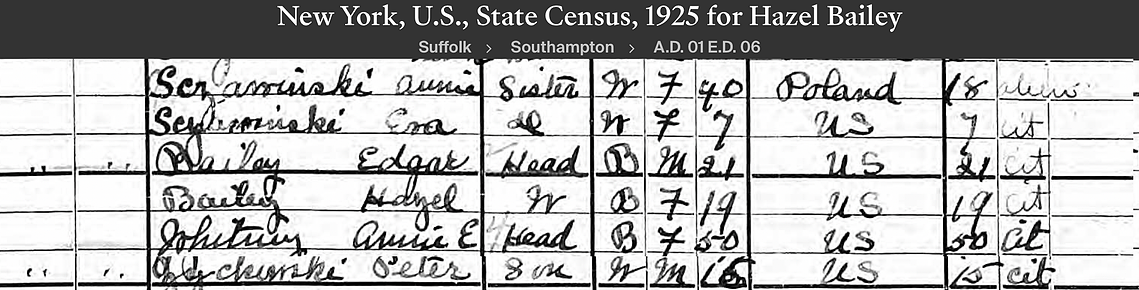 New York, U.S., State Census, 1925 for Hazel Bailey
Suffolk > Southampton > A.D. 01 E.D. 06
Annie Sister W F 40 Poland 18 alien
Eva do W F 7 US 7 cit
" " Bailey Edgar Head B M 21 US 21 cit
Bailey Hazel W B F 19 US 19 cit
Annie E Head B F 50 US 50 cit
" " Peter Son W M 15 US 15 cit